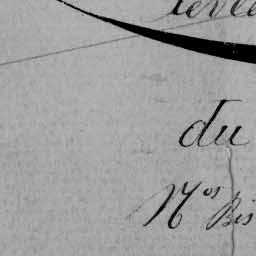 du
Nos Bis